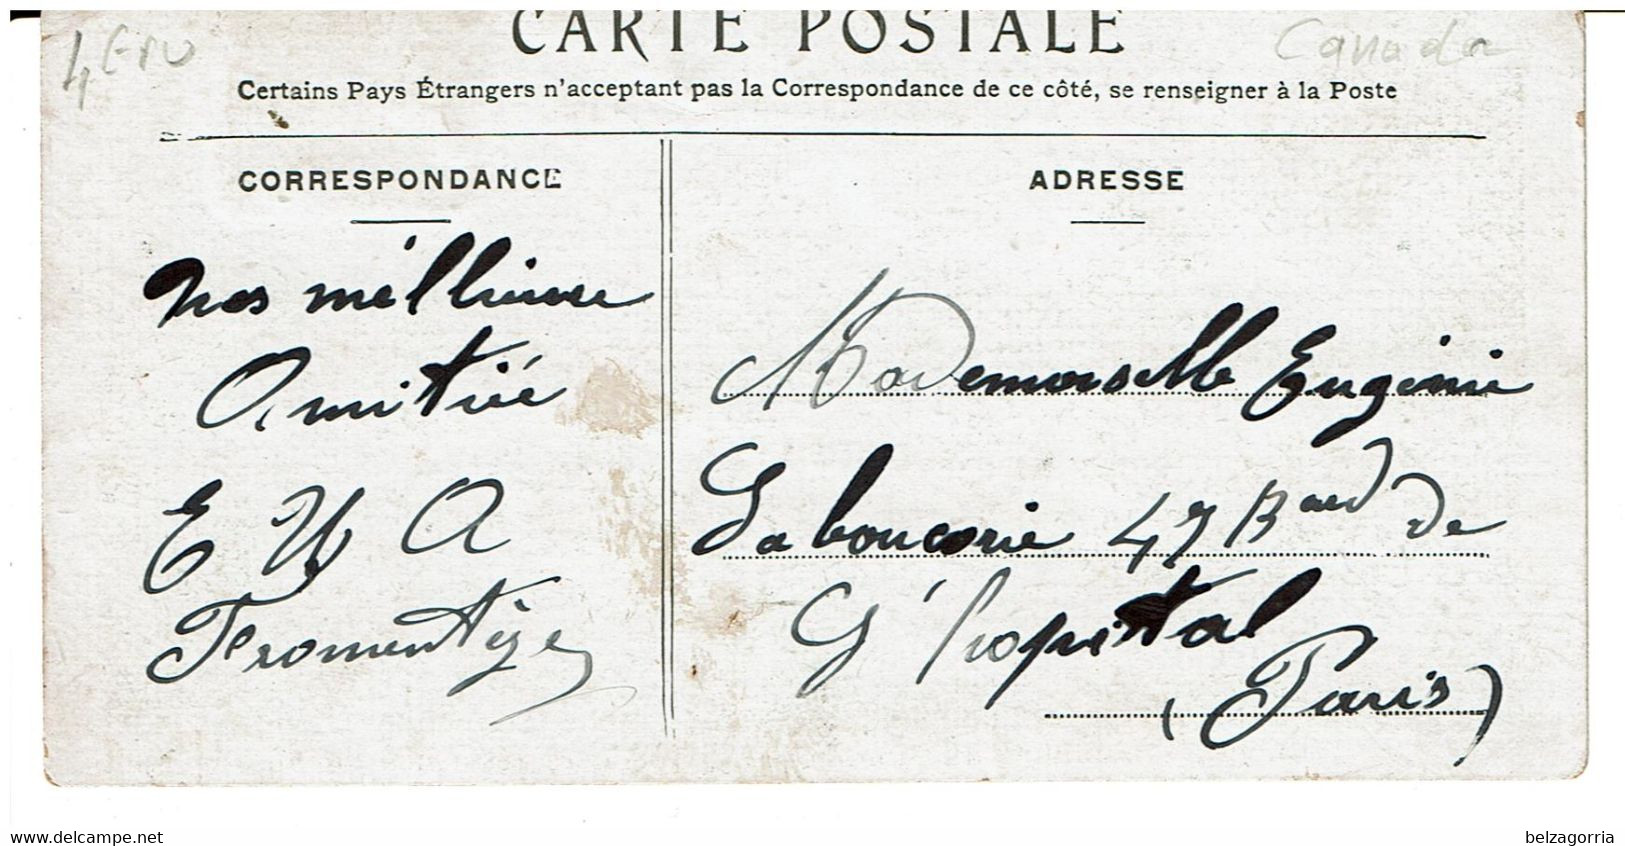 4 Ero
Canada
CARTE POSTALE
Certains Pays Étrangers n'acceptant pas la Correspondance de ce côté, se renseigner à la Poste
CORRESPONDANCE
nos meilleure
Amitié
E A
Fromentèze
ADRESSE
Mademoiselle Eugénie
Laboucarie 47 Bard de
L'hopital
(Paris)
www.delcampe.net
belzagorria